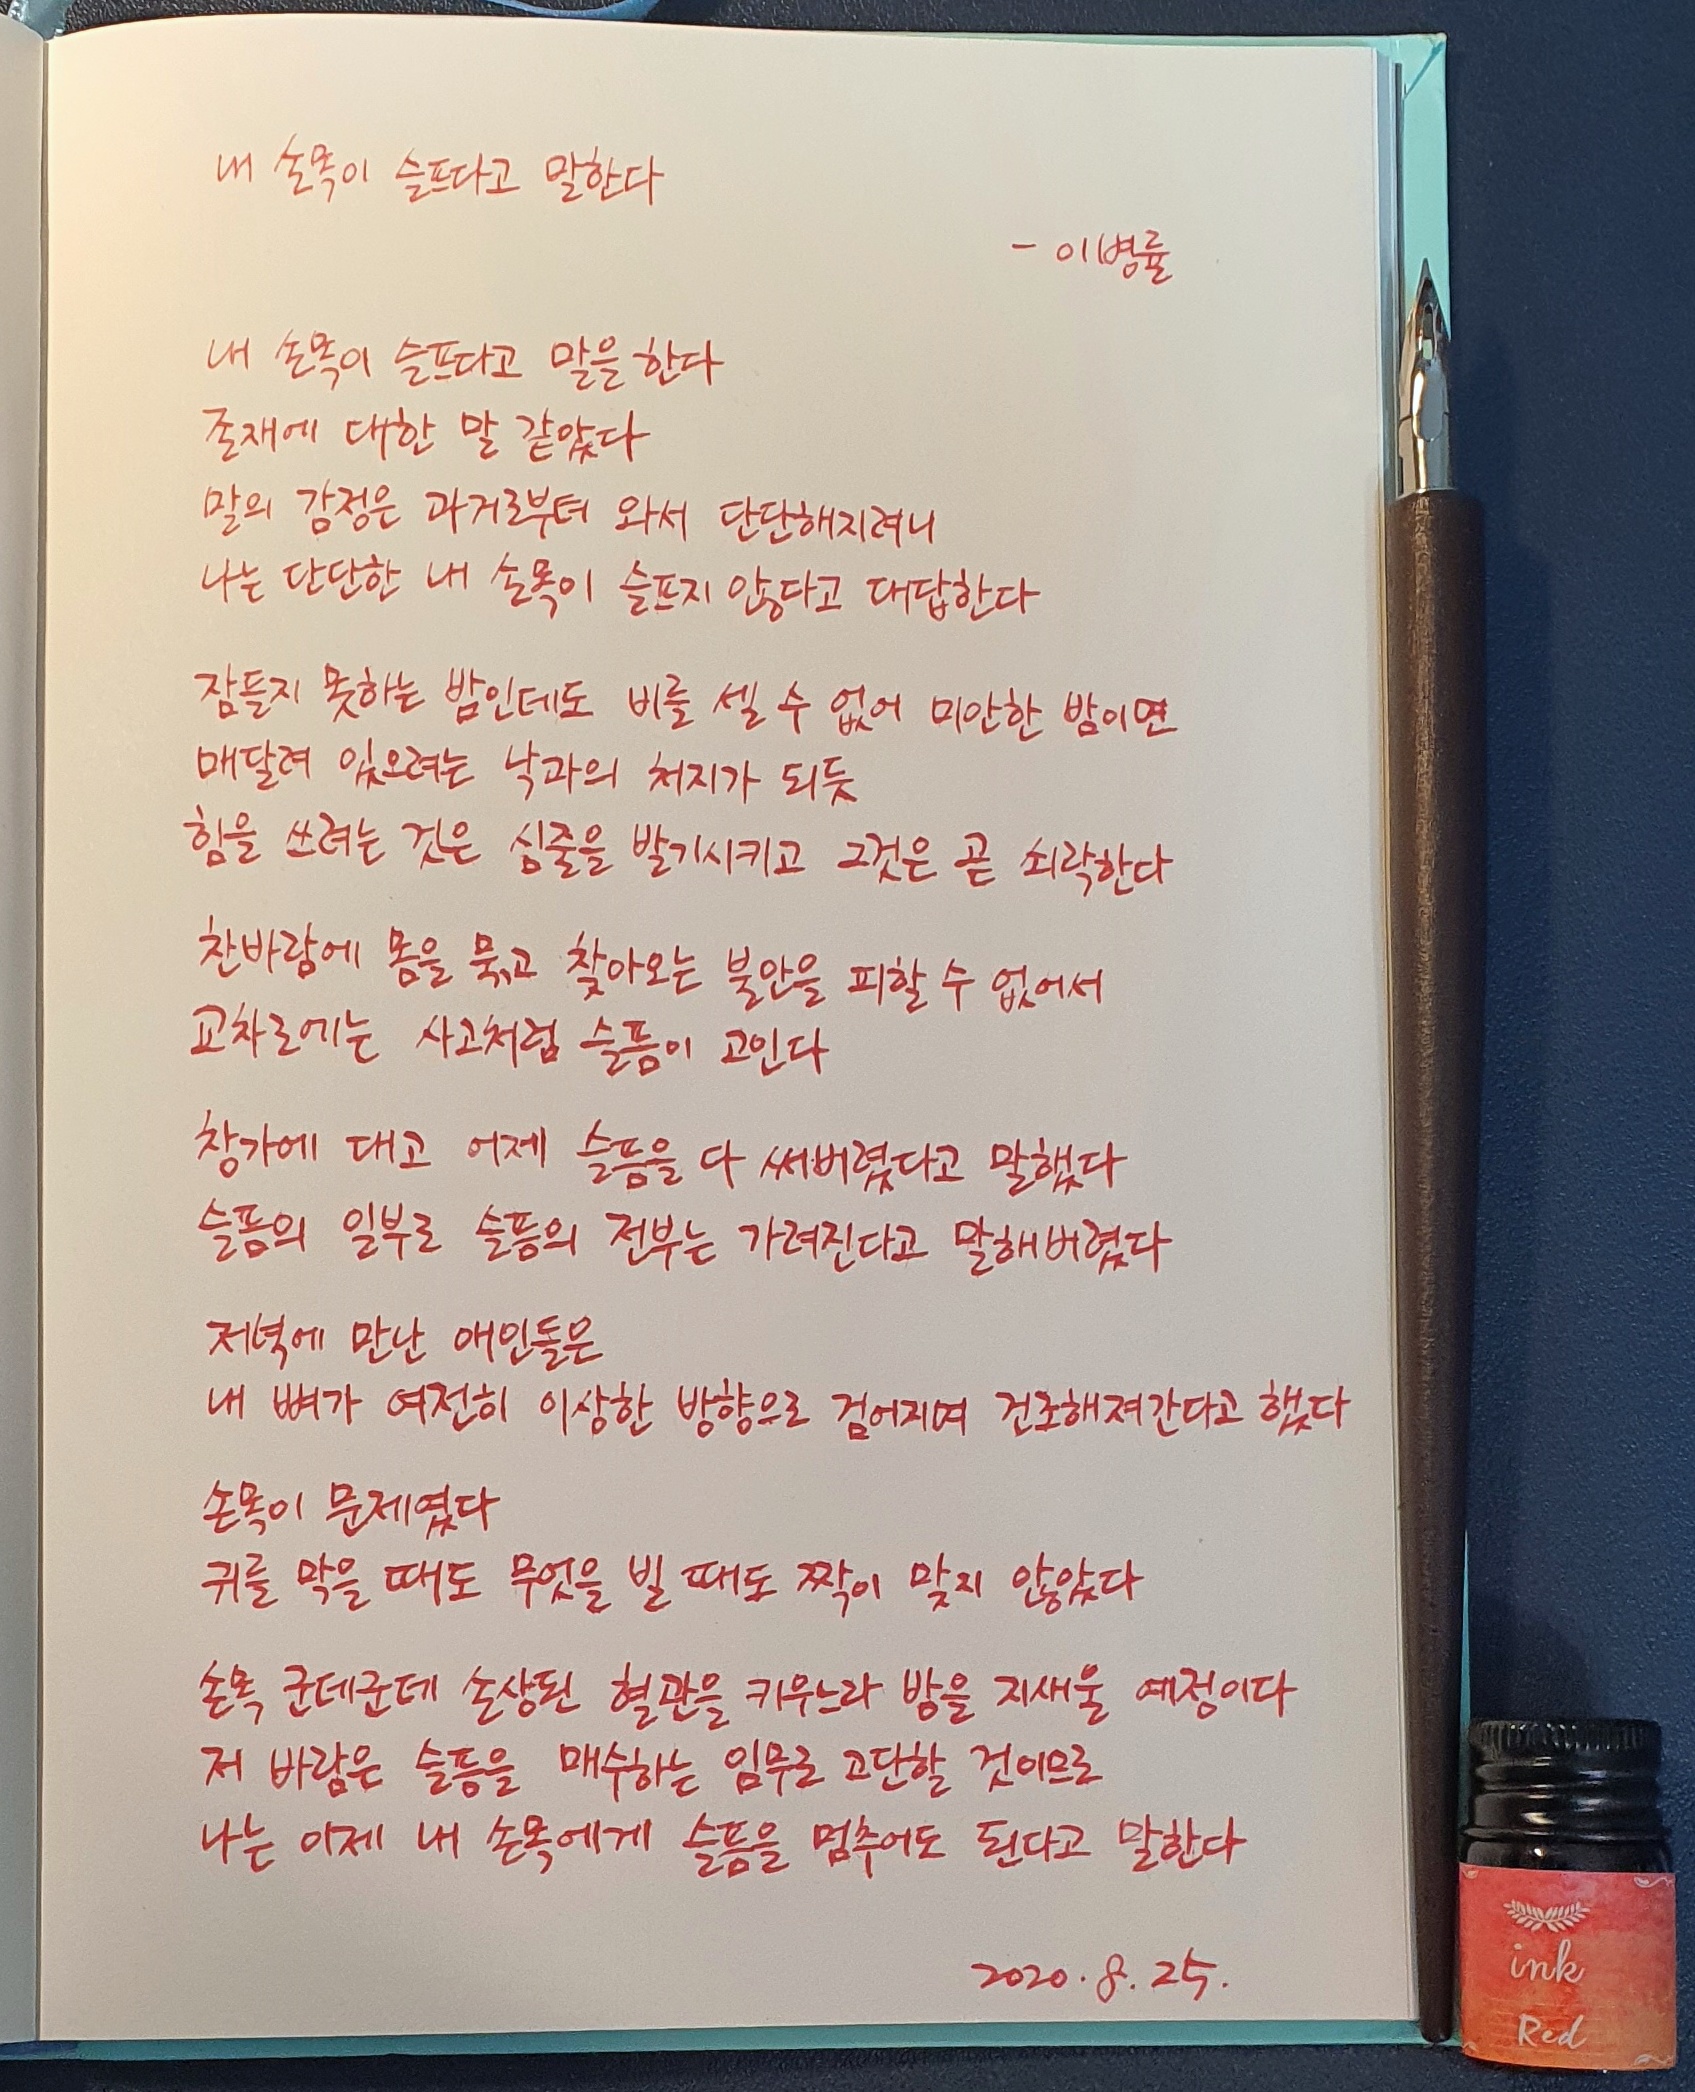 내 손목이 슬프다고 말한다
- 이병률
내 손목이 슬프다고 말을 한다
존재에 대한 말 같았다
말의 감정은 과거로부터 와서 단단해지려니
나는 단단한 내 손목이 슬프지 않다고 대답한다
잠들지 못하는 밤인데도 비를 셀 수 없어 미안한 밤이면
매달려 있으려는 낙과의 처지가 되듯
힘을 쓰려는 것은 심줄을 발기시키고 그것은 곧 쇠락한다
찬바람에 몸을 묶고 찾아오는 불안을 피할 수 없어서
교차로에는 사고처럼 슬픔이 고인다
창가에 대고 어제 슬픔을 다 써버렸다고 말했다
슬픔의 일부로 슬픔의 전부는 가려진다고 말해버렸다
저녁에 만난 애인들은
내 뼈가 여전히 이상한 방향으로 검어지며 건조해져간다고 했다
손목이 문제였다
귀를 막을 때도 무엇을 빌 때도 짝이 맞지 않았다
손목 군데군데 손상된 혈관을 키우느라 밤을 지새울 예정이다
저 바람은 슬픔을 매수하는 임무로 고단할 것이므로
나는 이제 내 손목에게 슬픔을 멈추어도 된다고 말한다
2020.8.25.
ink
Red